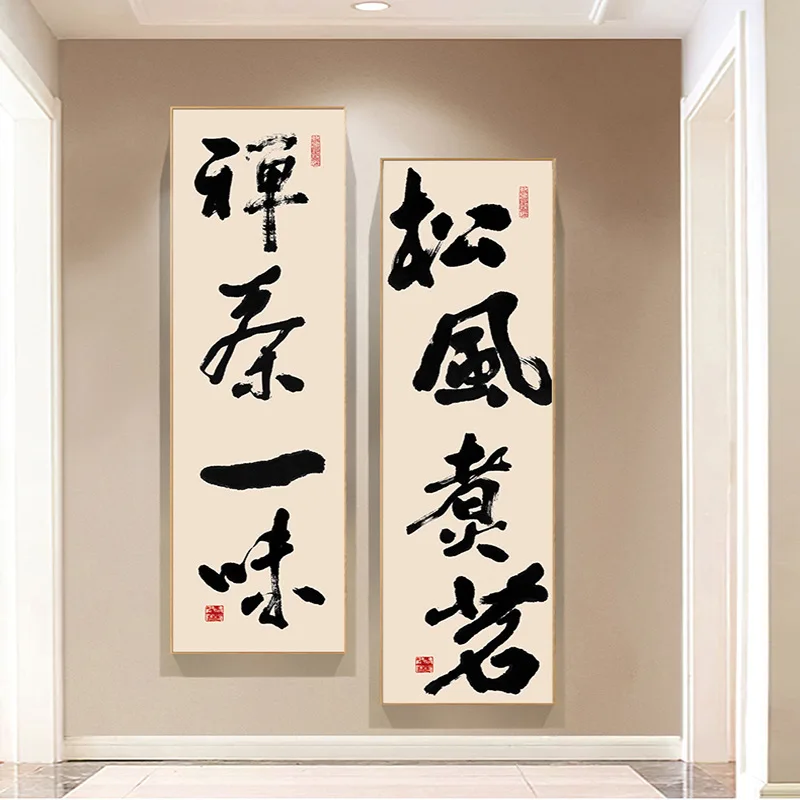 松風煮茗
禪茶一味